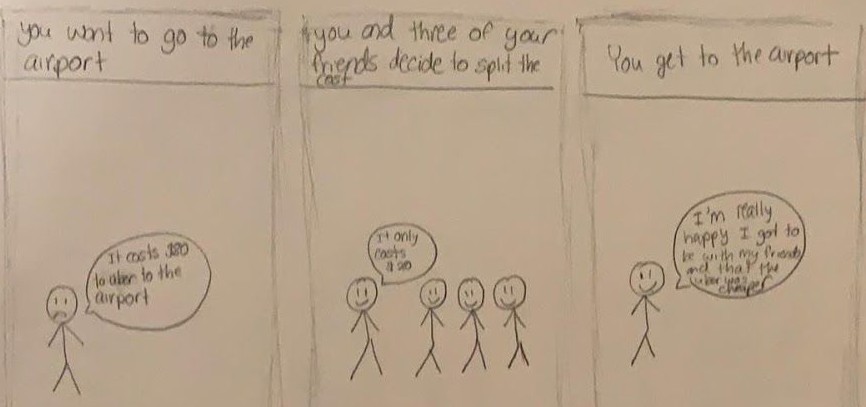 you want to go to the
airport
It costs $80
to uber to the
airport
you and three of your
friends decide to split the
cost
It only
costs
$20
You get to the airport
I'm really
happy I got to
be with my friends
and that the
uber was
cheaper